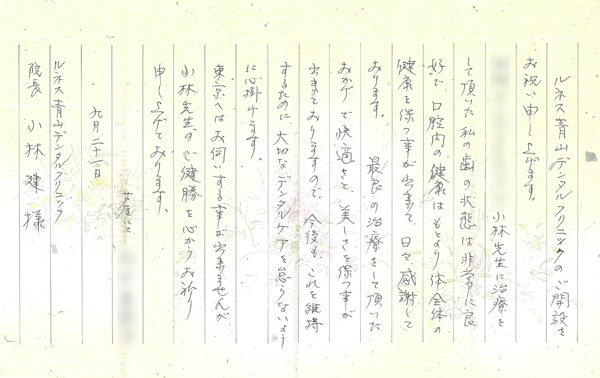 ルネス青山デンタルクリニックのご開設を
お祝い申し上げます。
小林先生に治療を
して頂いた私の歯の状態は非常に良
好で、口腔内の健康はもとより体全体の
健康を保つ事が出来て、日々感謝して
おります。 最良の治療をして頂いた
おかげで快適さと、美しさを保つ事が
出来ておりますので、今後もこれを維持
するために、大切なデンタルケアを怠らないよう
に心掛けます。
東京へはお伺いする事が出来ませんが
小林先生のご健勝を心からお祈り
申し上げております。
九月二十一日
芦屋にて
ルネス青山デンタルクリニック
院長 小林 建 様